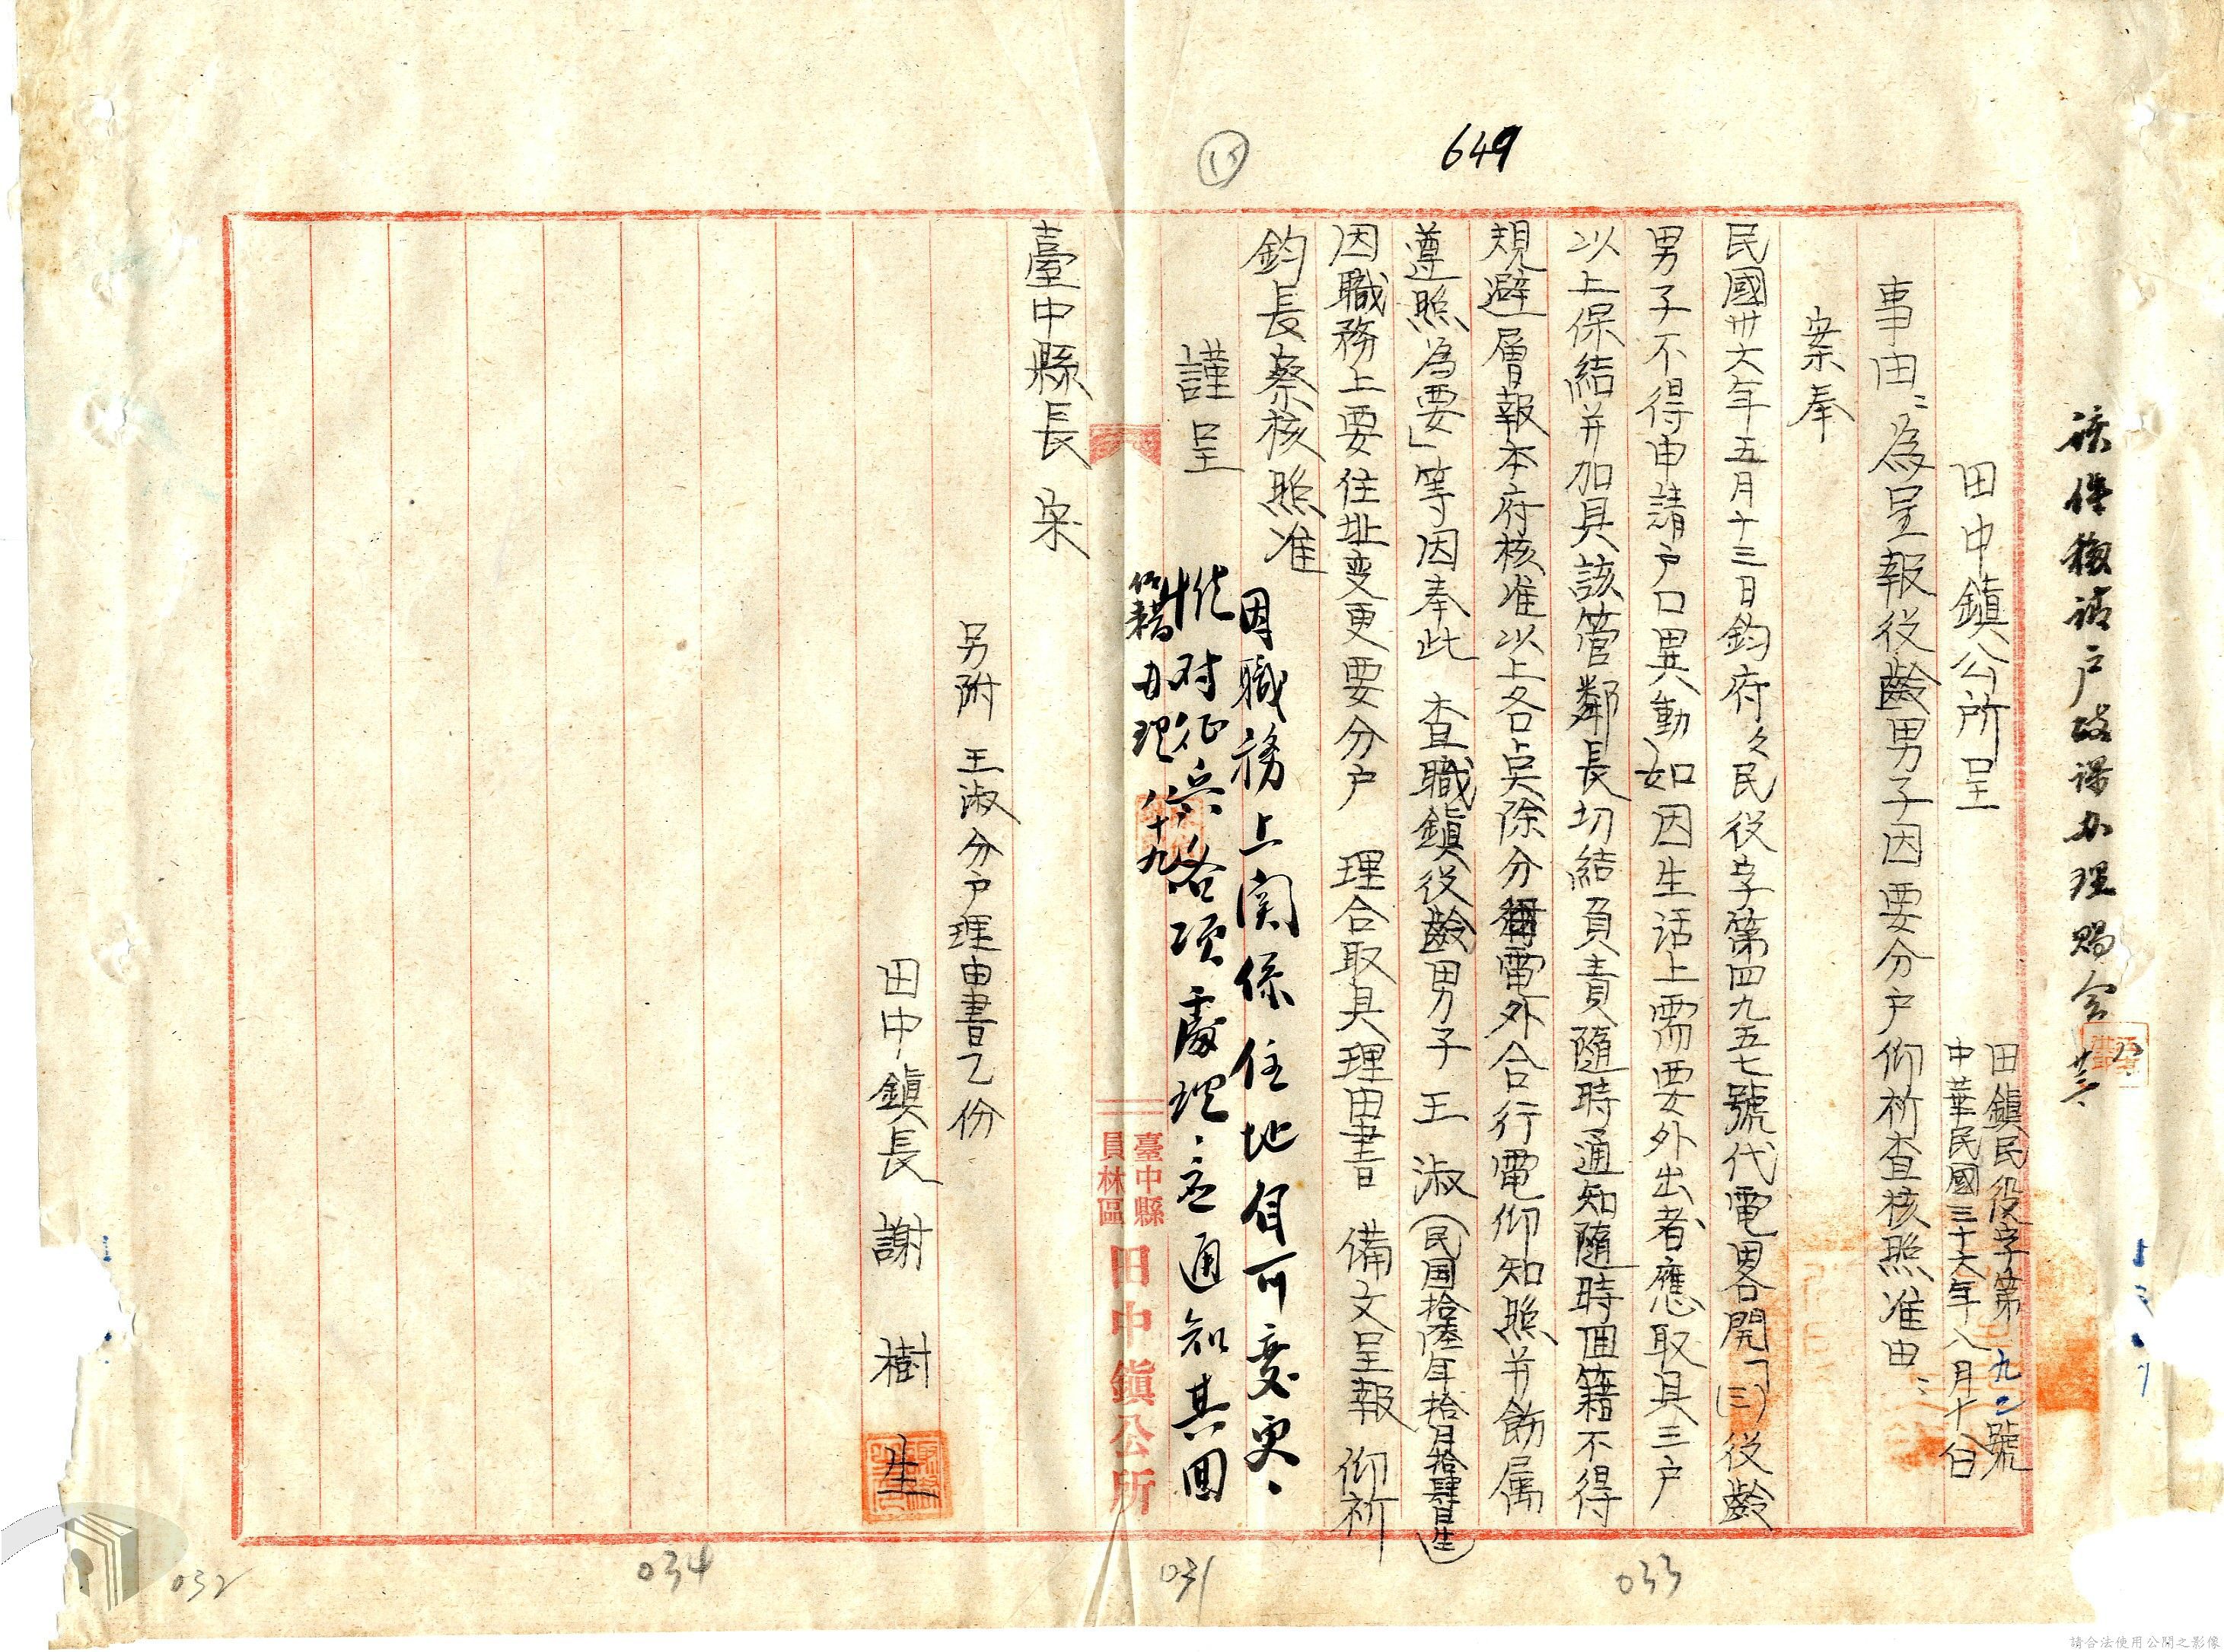 649
15
該件移請戶政課办理賜会
田中鎮公所呈
田鎮民役字第九二號
中華民國三十六年八月十八日
事由:為呈報役齡男子因要分户仰祈查核照准由:
案奉
民國卅六年五月十三日鈞府々民役字第四九五七號代電畧開「(三)役齡
男子不得申請户口異動如因生活上需要外出者應取具三户
以上保結并加具該管鄰長切結負責隨時通知隨時囬籍不得
規避層報本府核准以上各點除分電外合行電仰知照并飭属
遵照為要」等因奉此 查職鎮役齡男子王淑(民国拾陸年拾月拾肆日生)
因職務上要住址变更要分户 理合取具理由書 備文呈報 仰祈
鈞長察核照准
謹呈
臺中縣長 宋
因職務上関係住址自可变更、
惟对征兵各項處理应通知其回
籍办理 八十九
臺中縣
員林區
田中鎮公所
另附 王淑分户理由書乙份
田中鎮長 謝樹生
033
031
034
032
請合法使用公開之影像